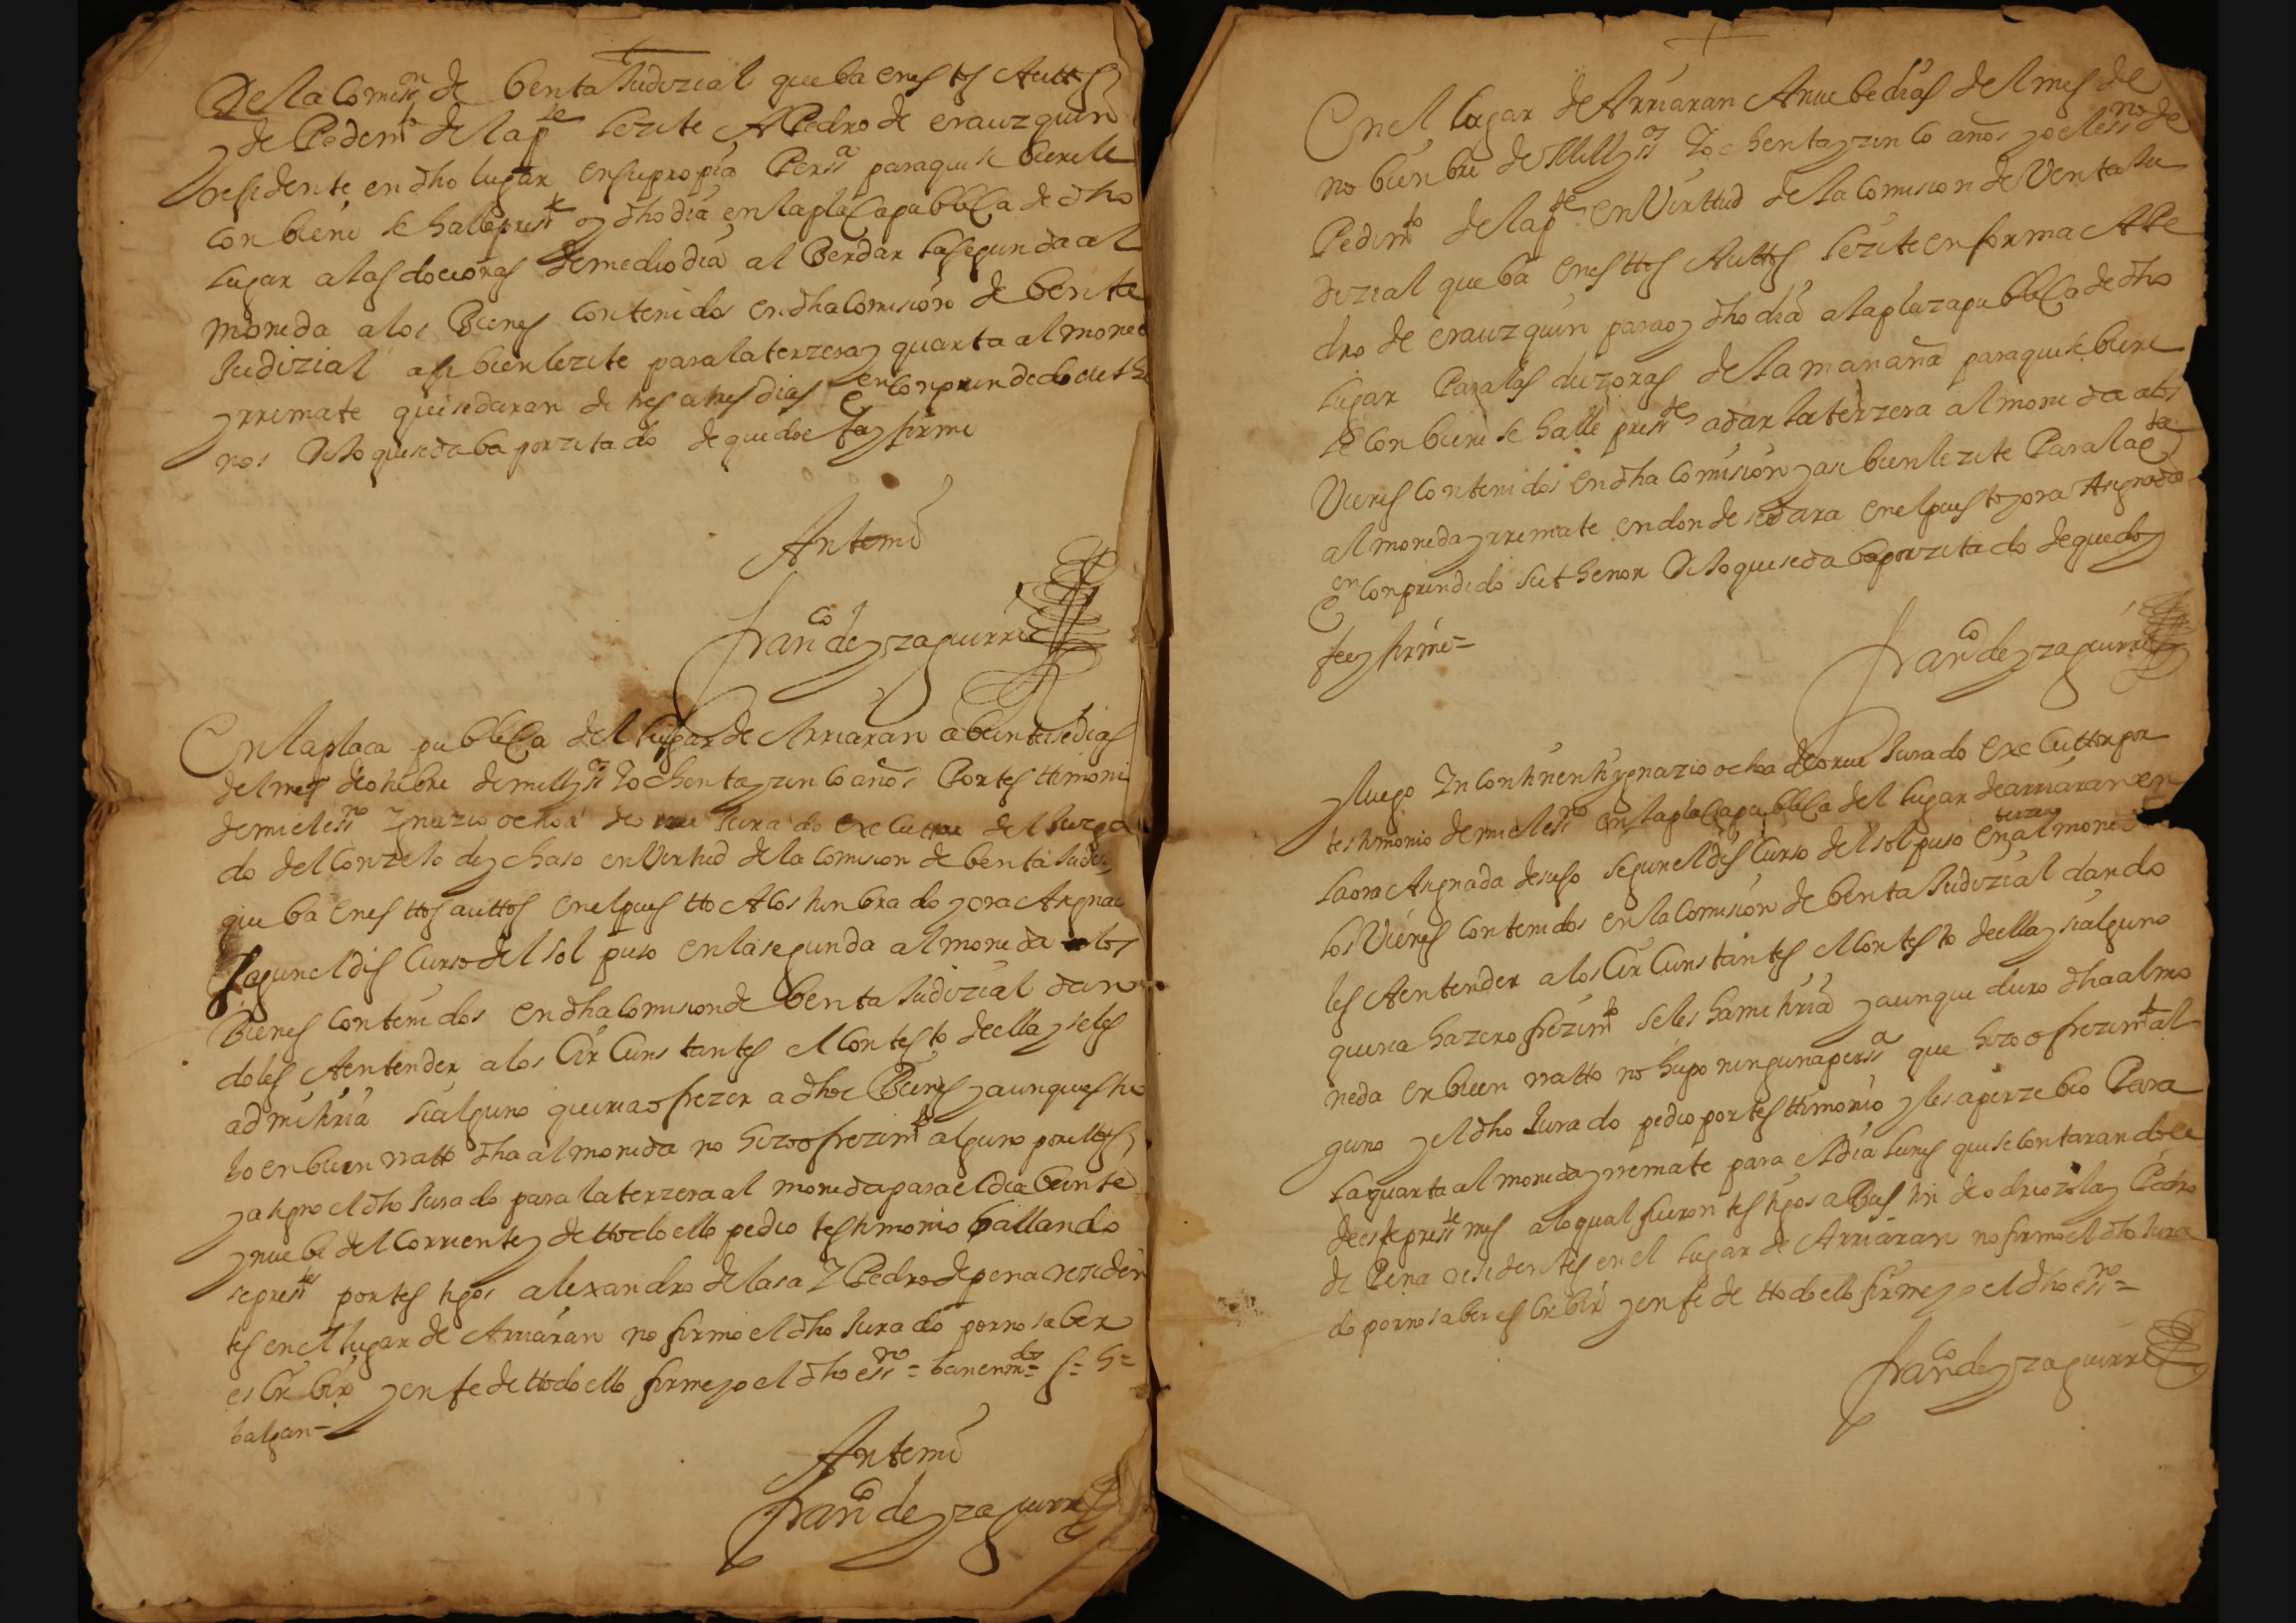 De la Comison de benta Judizial que ba en estos Auttos
y de Pedimto de la pte Lezite A Pedro de erauzquin
residente en dho lugar en su propia Perssa para que si biere le
conbiene se halle presste oy dho dia en la plaça pubblica de dho
lugar a las doce oras de medio dia al Berdar la segunda al
moneda a los Bienes contenidos en dha Comision de benta
Judizial asi bien lezite para la terzera y quarta almone
y rremate que se daran de tres a tres dias en conprendedo
nos Dijo que se daba por zitado de que doe fee y firme
Ante mi
Franco de yzaguirre
En la plaça pubblica del lugar de Arriaran a beinte seis dias
del mes de otubre de mill y ss os y ochenta y zinco años Por testtimoni
de mi el essno Ygnazio ochoa de orue Jurado executor del Juzga
do del Conzejo de ychaso en Virtud de la Comision de benta Judi
que ba en esttos auttos en el puestto Acostunbrado y ora Asignad
segun el discurso del sol puso en la segunda almoneda a los
Bienes contenidos en dha Comision de benta Judizial dan
doles A entender a los Circunstantes el Contesto de ella y se les
admitiria si alguno queria ofrezer a dhos Bienes y aunque estu
bo en buen rratto dha almoneda no hizo ofrezimto alguno por ellos
y asigno el dho Jurado para la terzera almoneda para el dia beinte
y nuebe del Corriente y de ttodo ello pedio testimonio hallando
se presstes por testigos alexandro de lasa Y Pedro de pena residen
tes en el lugar de Arriaran no firmo el dho Jurado por no saber
escribir y en fe de ttodo ello firme yo el dho essno = ba enmdo = s = h =
balgan =
Ante mi
Franco de yzaguirre
En el lugar de Arriaran A nuebe dias del mes de
nobienbre de Mill y ss os Y ochenta y zinco años yo el essno de
Pedimto de la pte en Virttud de la Comision de Venta Ju
dizial que ba en esttos Auttos Lezite en forma A Pe
dro de erauzquin para oy dho dia a la plaza pubblica de dho
lugar Para las diez oras de la mañana para que si biere
le conbiene se halle presste a dar la terzera almoneda a los
Vienes contenidos en dha Comision y asi bien lezite Para la qta
almoneda y rremate en donde se dara en el puesto y ora Asignado
en conprendido su thenor Dijo que se daba por zitado de que doy
fee y firme =
Franco de yzaguirre
y luego Yn continenti ygnazio ochoa de orue Jurado executtor por
testimonio de mi el essno en la plaça pubblica del lugar de arriaran en
la ora Asignada de suso segun el discurso del sol puso en terzera almone
los Vienes contenidos en la Comision de benta Judizial dando
les A entender a los Circunstantes el Contesto de ella y si alguno
queria hazer ofrezimto se les hamitiria y aunque duro dha almo
neda en buen rratto no hupo ninguna perssa que hizo ofrezimto al
guno y el dho Jurado pedio por testtimonio y les aperzebio Para
la quarta almoneda y rremate para el dia lunes que se contaran doce
de este presste mes a lo qual fueron testigos a Bastin de odriozola y Pedro
de Pena residentes en el lugar de Arriaran no firmo el dho Jura
do por no saber escribir y en fe de ttodo ello firme yo el dho essno =
Franco de yzaguirre